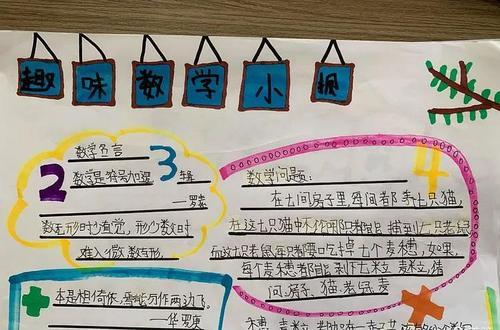 趣味数学小报
数学名言
2 数学是符号加逻 3 辑
——罗素
数无形时少直觉，形少数时
难入微，数与形，
本是相倚依，焉能分作两边飞。
——华罗庚
数学问题： 4
在七间房子里每间都养七只猫，
在这七只猫中不论哪只都能捕到七只老鼠
而这七只老鼠每只都要吃掉七个麦穗，如果
每个麦穗都能剥下七粒麦粒，请
问：房子、猫、老鼠、麦
穗、麦粒